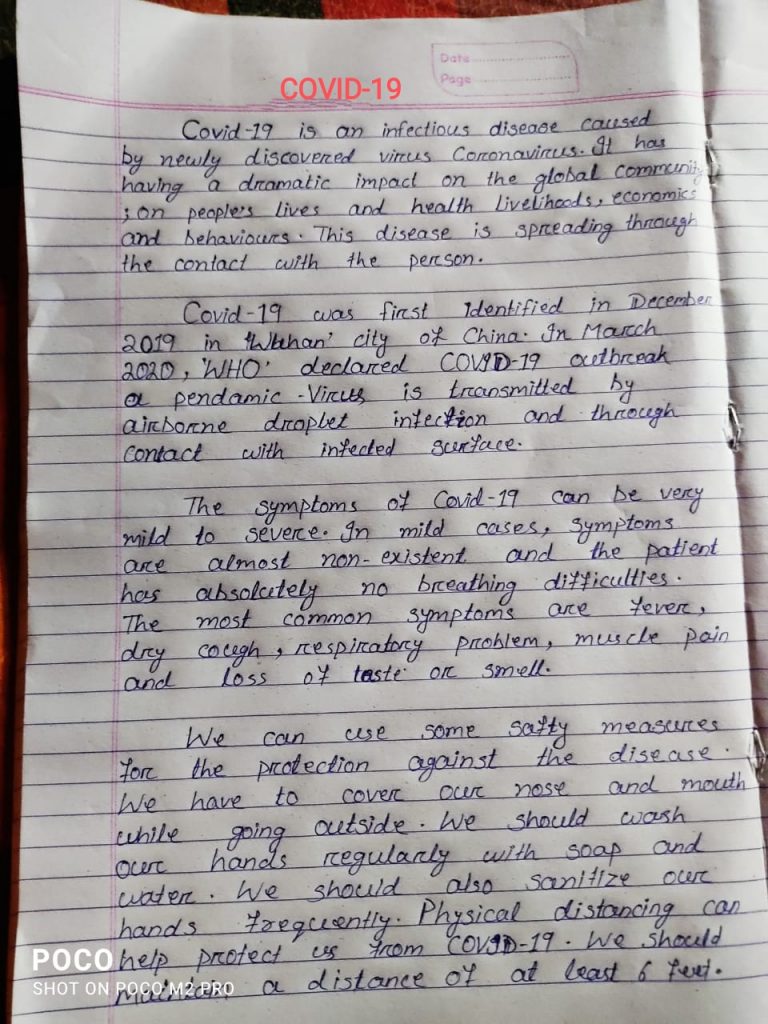 Date
Page
COVID-19
Covid-19 is an infectious disease caused
by newly discovered virus Coronavirus. It has
having a dramatic impact on the global community
; on people's lives and health livelihods, economics
and behaviours. This disease is spreading through
the contact with the person.
Covid-19 was first identified in December
2019 in 'Wuhan' city of China. In March
2020, 'WHO' declared COVID-19 outbreak
a pendamic -Virus is transmitted by
airborne droplet infection and through
contact with infected surface.
The symptoms of Covid-19 can be very
mild to severe. In mild cases, symptoms
are almost non-existent and the patient
has absolutely no breathing difficulties.
The most common symptoms are fever,
dry cough, respiratory problem, muscle pain
and loss of taste or smell.
We can use some safty measures
for the protection against the disease.
We have to cover our nose and mouth
while going outside. We should wash
our hands regularly with soap and
water. We should also sanitize our
hands frequently. Physical distancing can
help protect us from COVID-19. We should
maintain a distance of at least 6 feet.
POCO
SHOT ON POCO M2 PRO